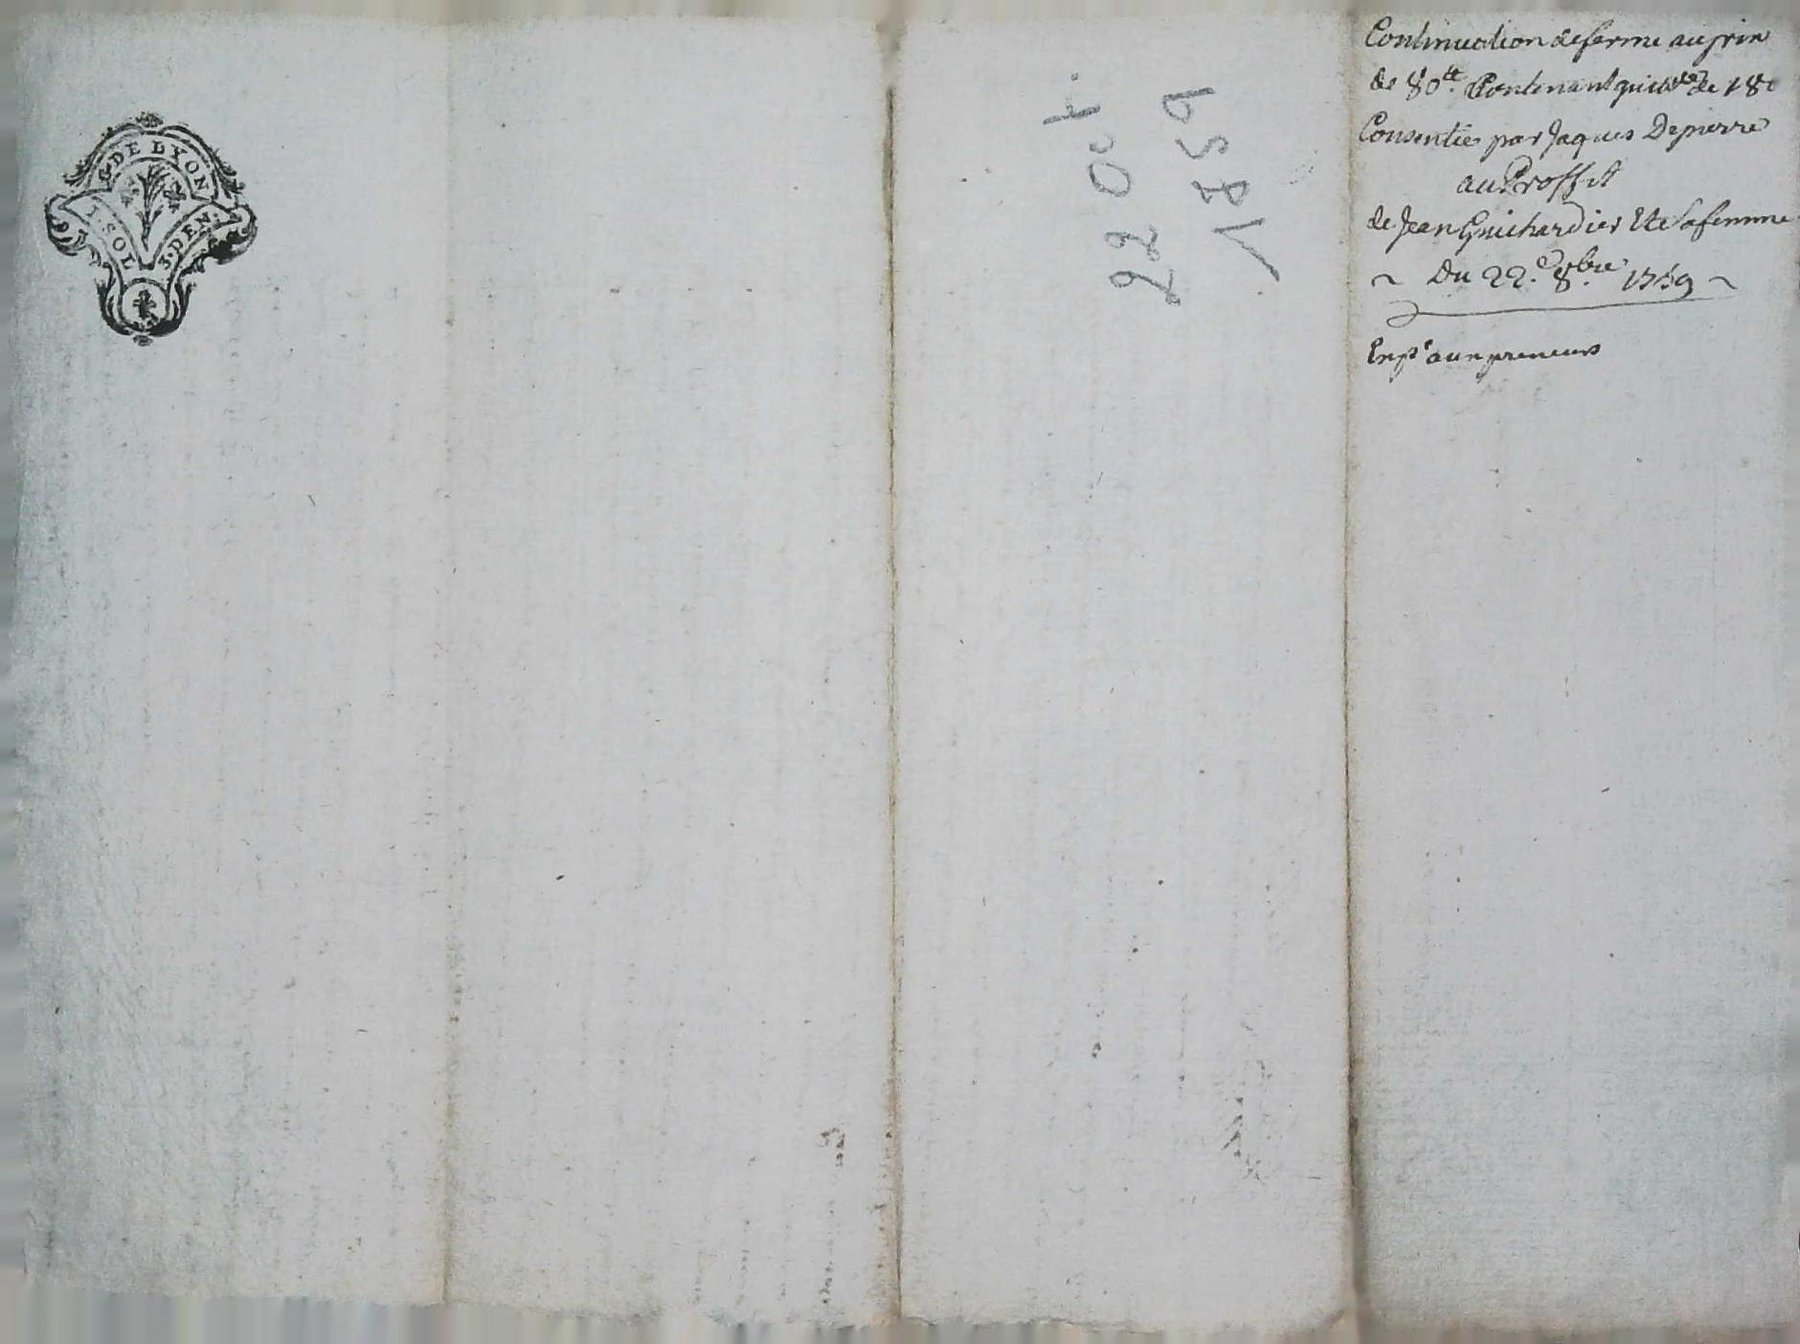 G. DE LYON
1. SOL 3. DEN.
22 Oct.
1759
Continuation de ferme au prix
de 80.tt Contenant quittce de 18
Consentie par Jaques Depierre
au Proffit
de Jean Guichardier Et Sa femme
~ Du 22.e 8.bre 1759 ~
Exp.n aux preneurs